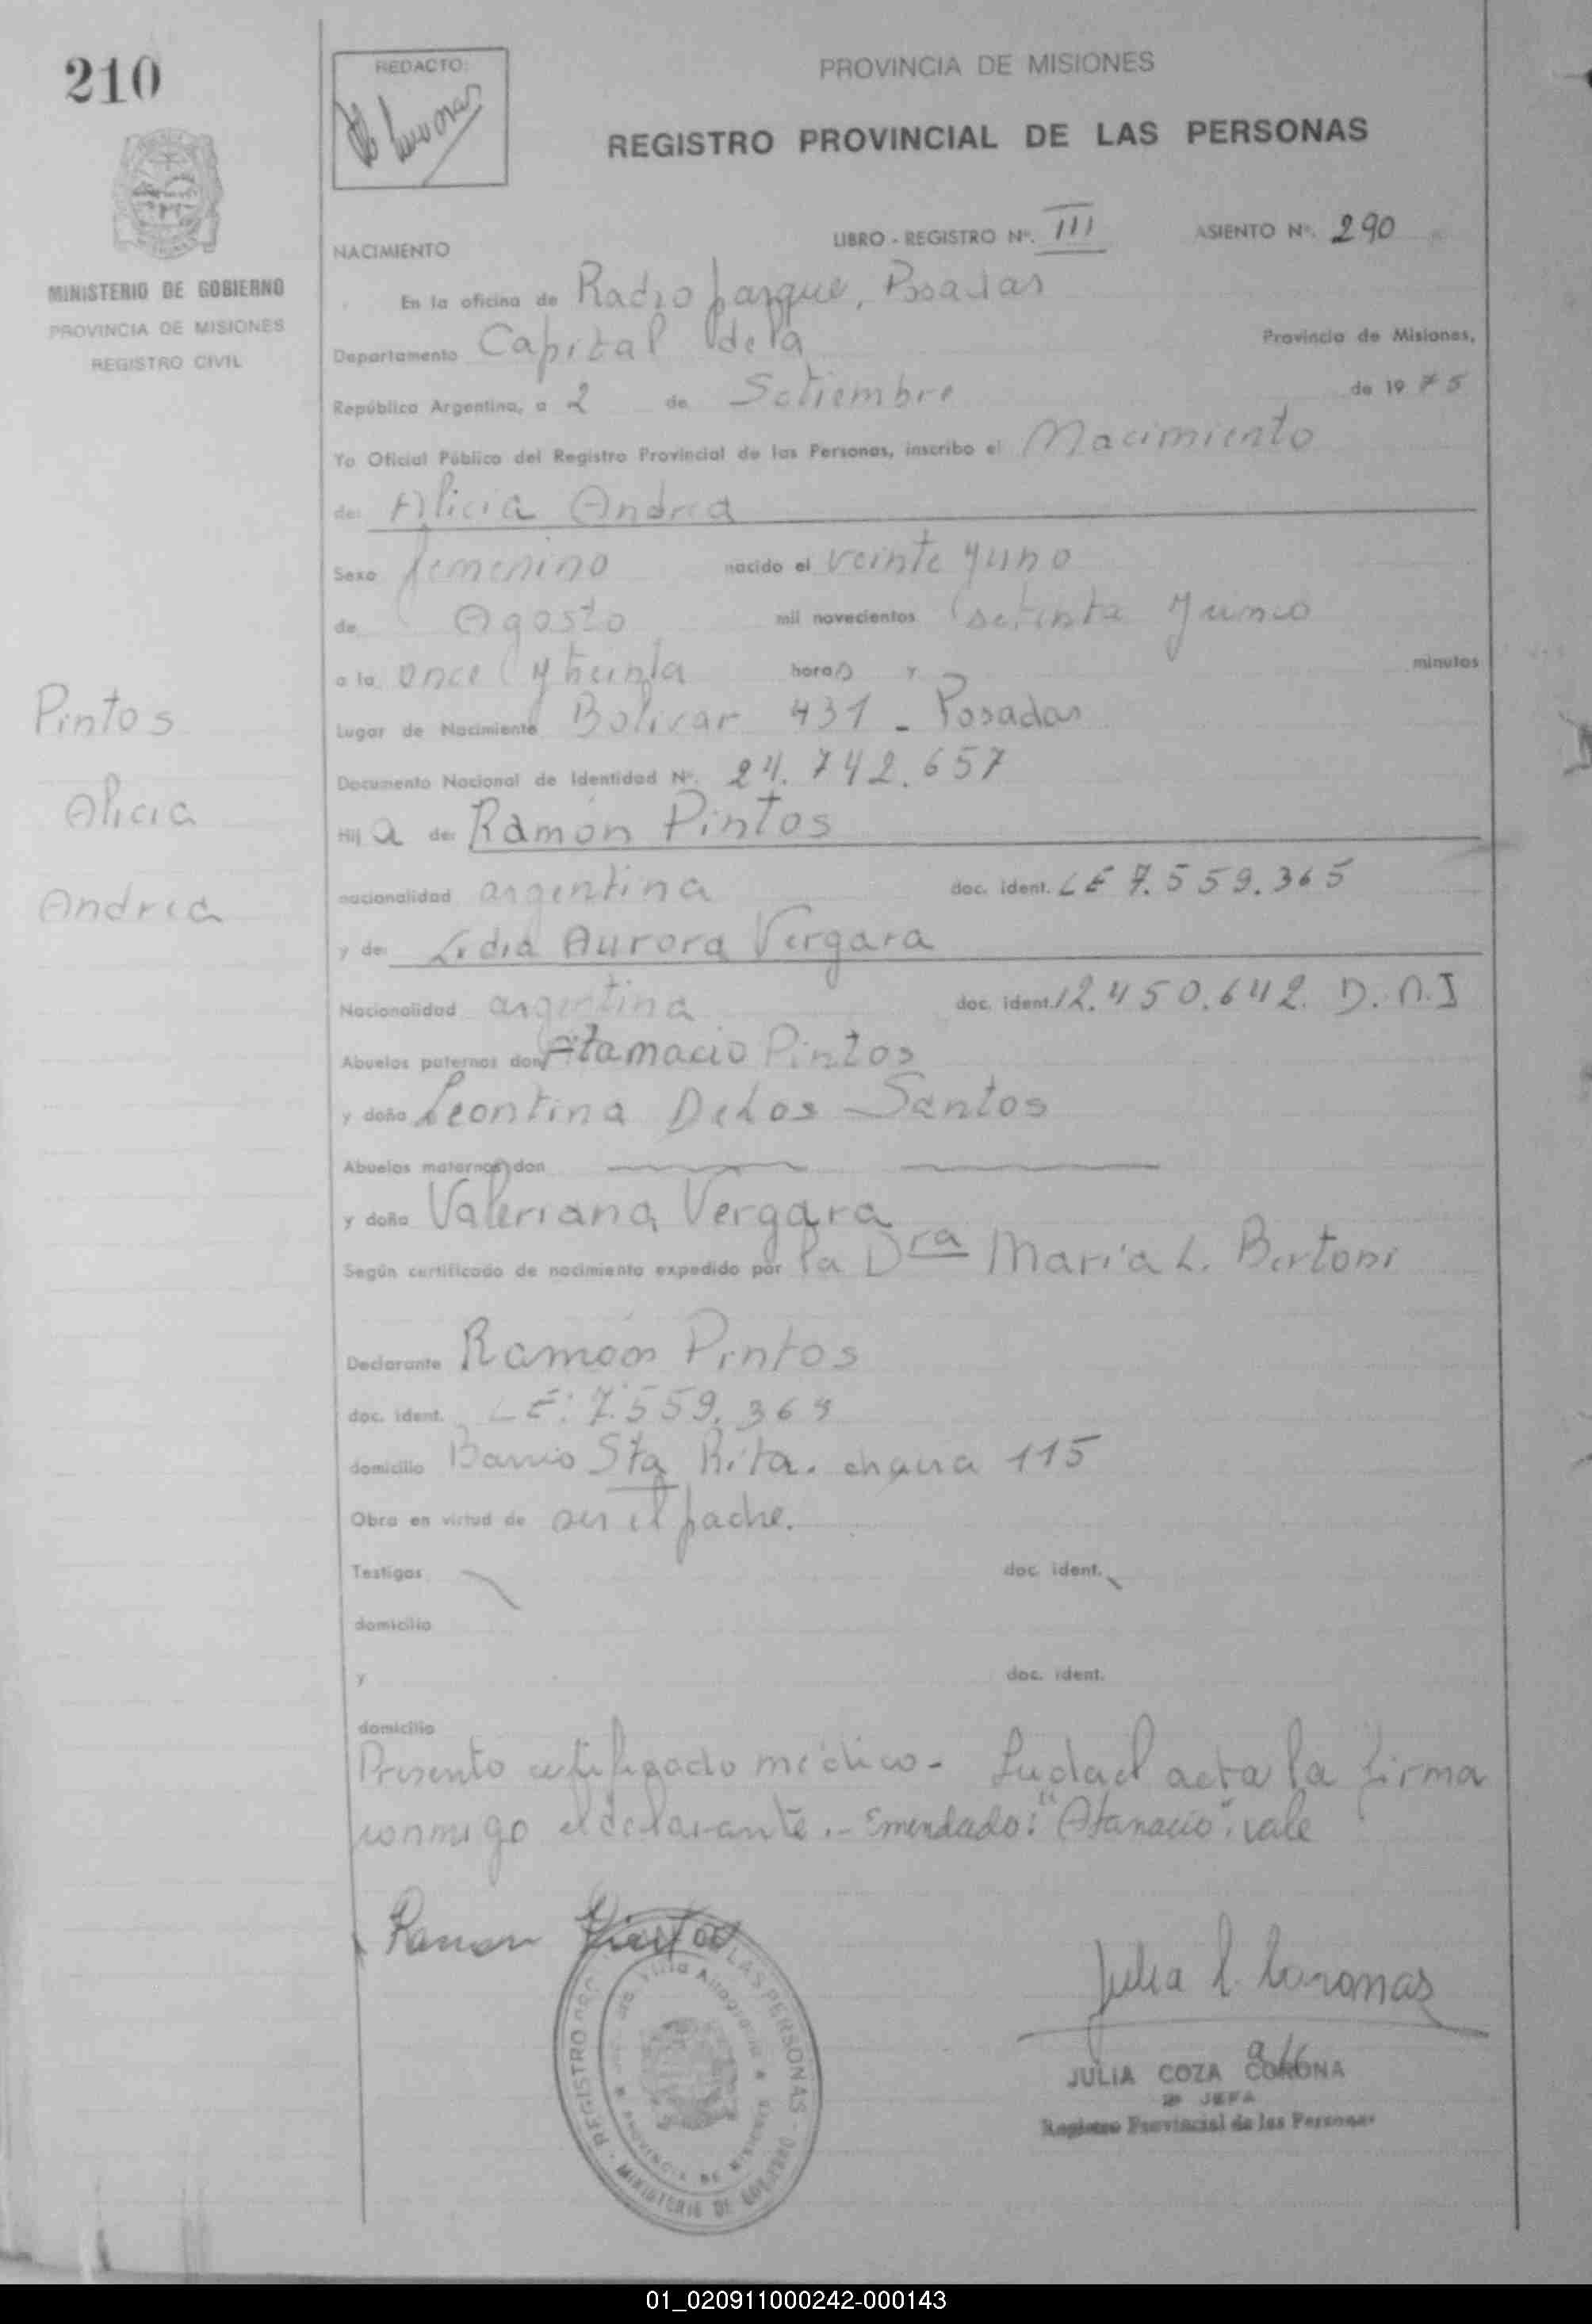 210
REDACTO:
PROVINCIA DE MISIONES
REGISTRO PROVINCIAL DE LAS PERSONAS
MINISTERIO DE GOBIERNO
PROVINCIA DE MISIONES
REGISTRO CIVIL
NACIMIENTO
LIBRO - REGISTRO Nº. III ASIENTO Nº. 290
En la oficina de Radio parque, Posadas
Departamento Capital de la Provincia de Misiones,
República Argentina, a 2 de Setiembre de 1975
Yo Oficial Público del Registro Provincial de las Personas, inscribo el Nacimiento
de: Alicia Andrea
Sexo femenino nacido el veinte y uno
de Agosto mil novecientos setenta y cinco
a la once y treinta horas y minutos
Lugar de Nacimiento Bolivar 431 - Posadas
Documento Nacional de Identidad Nº. 24.742.657
Hij a de: Ramón Pintos
nacionalidad argentina doc. ident. LE 7.559.365
y de: Lidia Aurora Vergara
Nacionalidad argentina doc. ident. 12.450.642. D.N.I
Abuelos paternos don Atanacio Pintos
y doña Leontina De Los Santos
Abuelos maternos don
y doña Valeriana Vergara
Según certificado de nacimiento expedido por la Dra María L. Bertoni
Declarante Ramón Pintos
doc. ident. LE: 7.559.365
domicilio Barrio Sta Rita. chacra 115
Obra en virtud de ser el padre.
Testigos doc. ident.
domicilio
y doc. ident.
domicilio
Presento certificado médico - Leida el acta la firma
conmigo el declarante.- Emendado: "Atanacio". vale
Pintos
Alicia
Andrea
Ramon Pintos
Julia C. Coronas
JULIA COZA CORONA
JEFA
Registro Provincial de las Personas
REGISTRO LAS PERSONAS - MINISTERIO DE GOBIERNO
PROVINCIA DE MISIONES
01_020911000242-000143